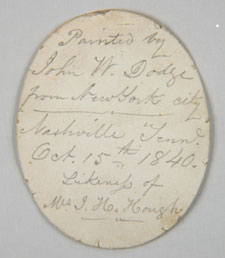 Painted by
John W. Dodge
from New York city
Nashville Tenn.
Oct. 15th 1840.
Likeness of
J. H. Hough